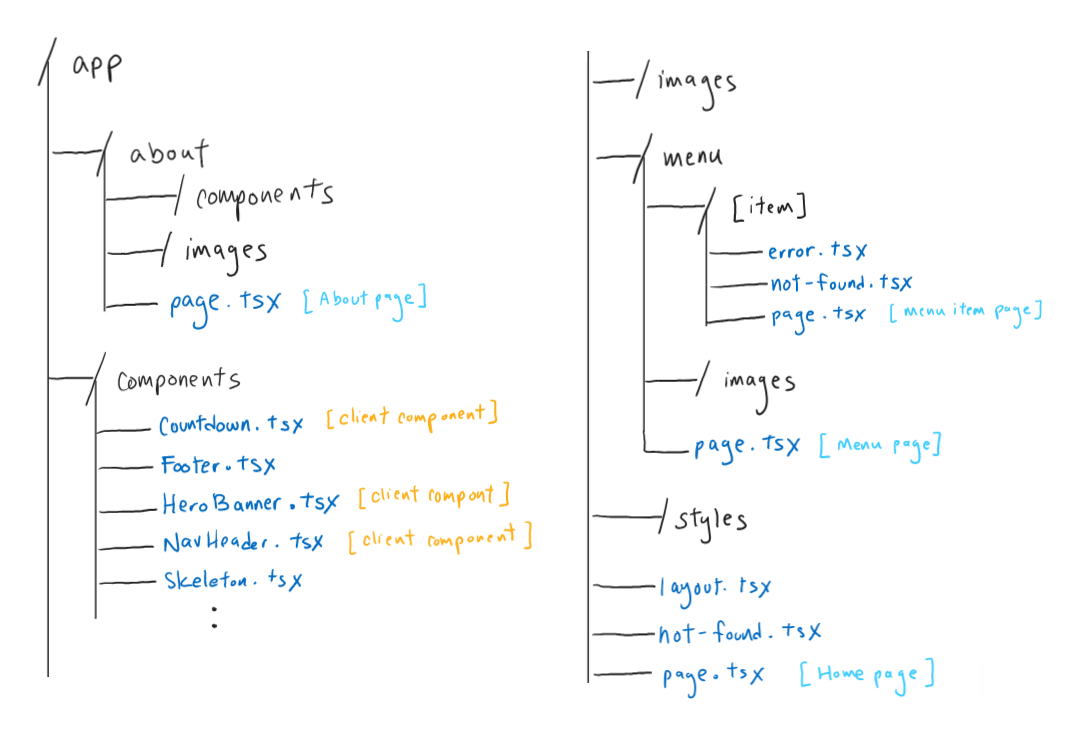 /app
/about
/components
/images
page.tsx [About page]
/components
Countdown.tsx [client component]
Footer.tsx
HeroBanner.tsx [client compont]
NavHeader.tsx [client component]
Skeleton.tsx
:
/images
/menu
/[item]
error.tsx
not-found.tsx
page.tsx [menu item page]
/images
page.tsx [Menu page]
/styles
layout.tsx
not-found.tsx
page.tsx [Home page]